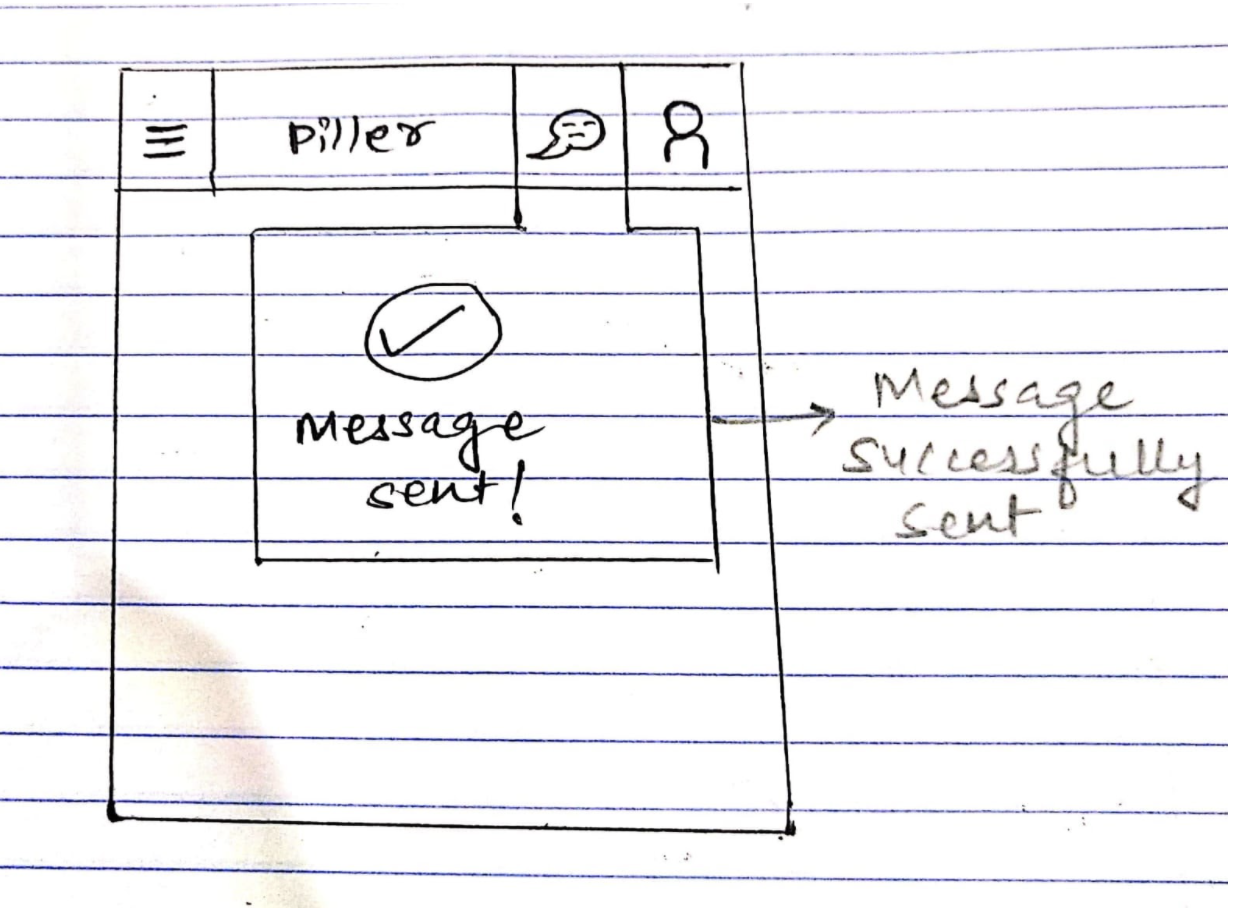 Piller
Message
sent!
Message
Successfully
sent